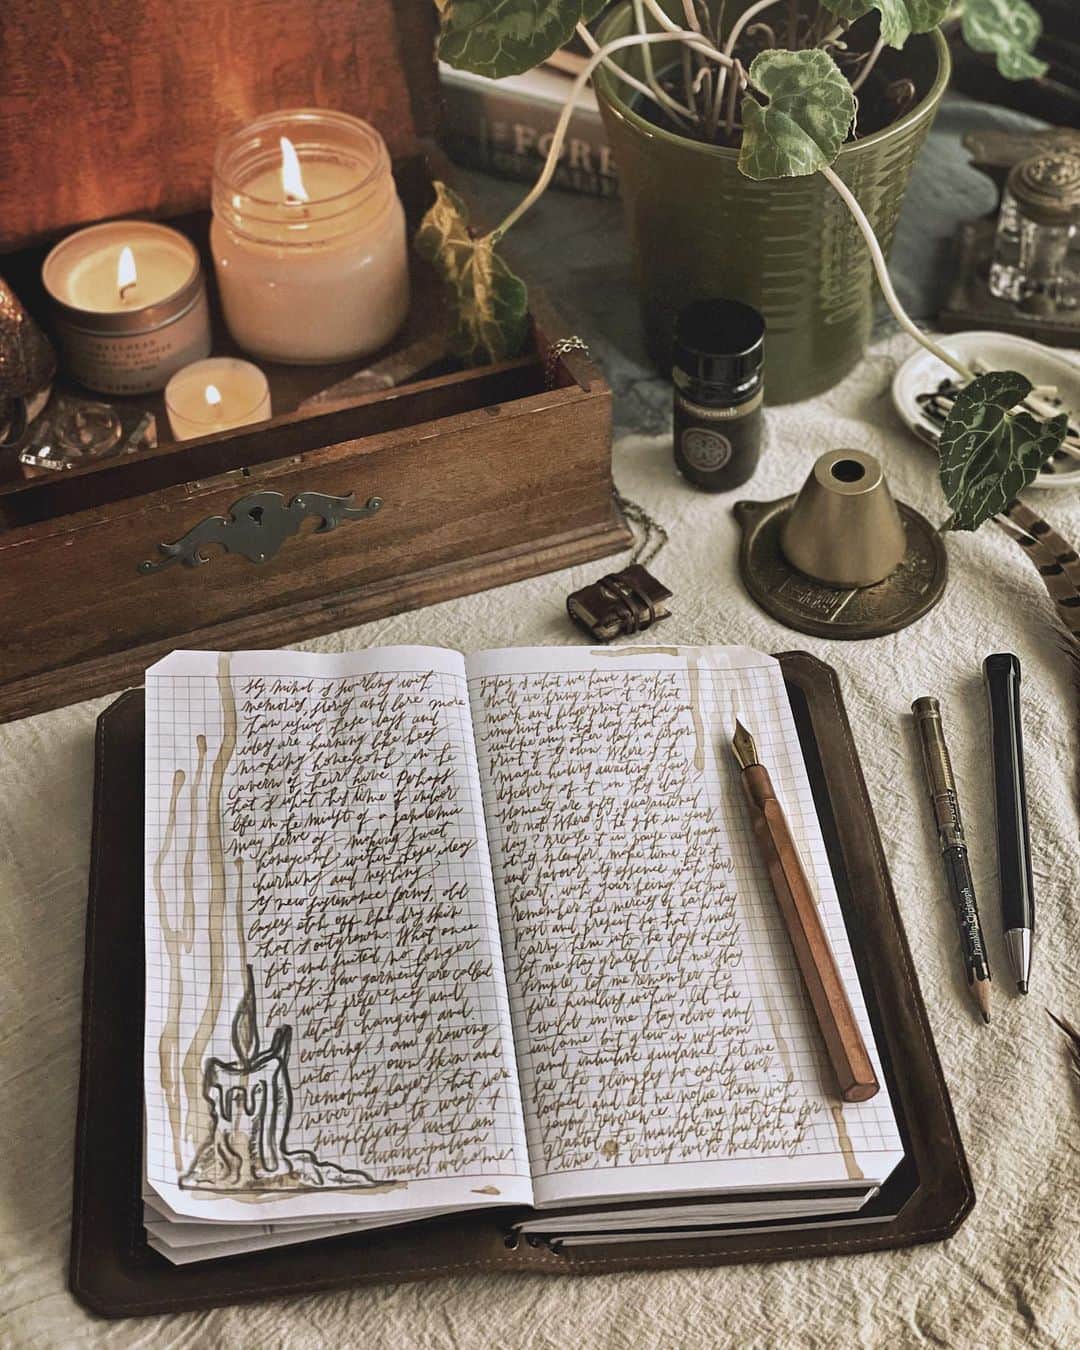 FORE
My mind is swirling with
memories, stories and lore more
than usual these days and
ideas are churning like bees
making honeycomb in the
cavern of their hive. Perhaps
that is what this time of indoor
life in the midst of a pandemic
may serve of. making sweet
honeycomb within these ideas
churning and nestling.
As new sustenance forms, old
layers etch off like dry skin
that is outgrown. What once
fit and suited no longer
works. New garments are called
for with preferences and
details changing and
evolving. I am growing
into my own skin and
removing layers that were
never mine to wear. A
simplifying and an
emancipation
much welcome
Today is what we have so what
shall we bring into it? What
mark and fingerprint would you
imprint on this day that is
unlike any other day, a finger-
print of its own. Where is the
magic hiding awaiting your
discovery of it in this day?
Moments are gifts, quarantined
or not. Where is the gift in your
day? Breathe it in, pause and gaze
at its splendor, make time for it
and savour its essence with your
heart, with your being. Let me
remember the mercies of each day
past and present so that I may
carry them into the days ahead.
Let me stay grateful, let me stay
simple, let me remember the
fire kindling within, let the
wild in me stay alive and
untame but glow in wisdom
and intuitive guidance. Let me
see the glimpses so easily over-
looked and let me notice them with
joyful reverence. Let me not take for
granted the mandate of purpose, of
time, of living with meaning.